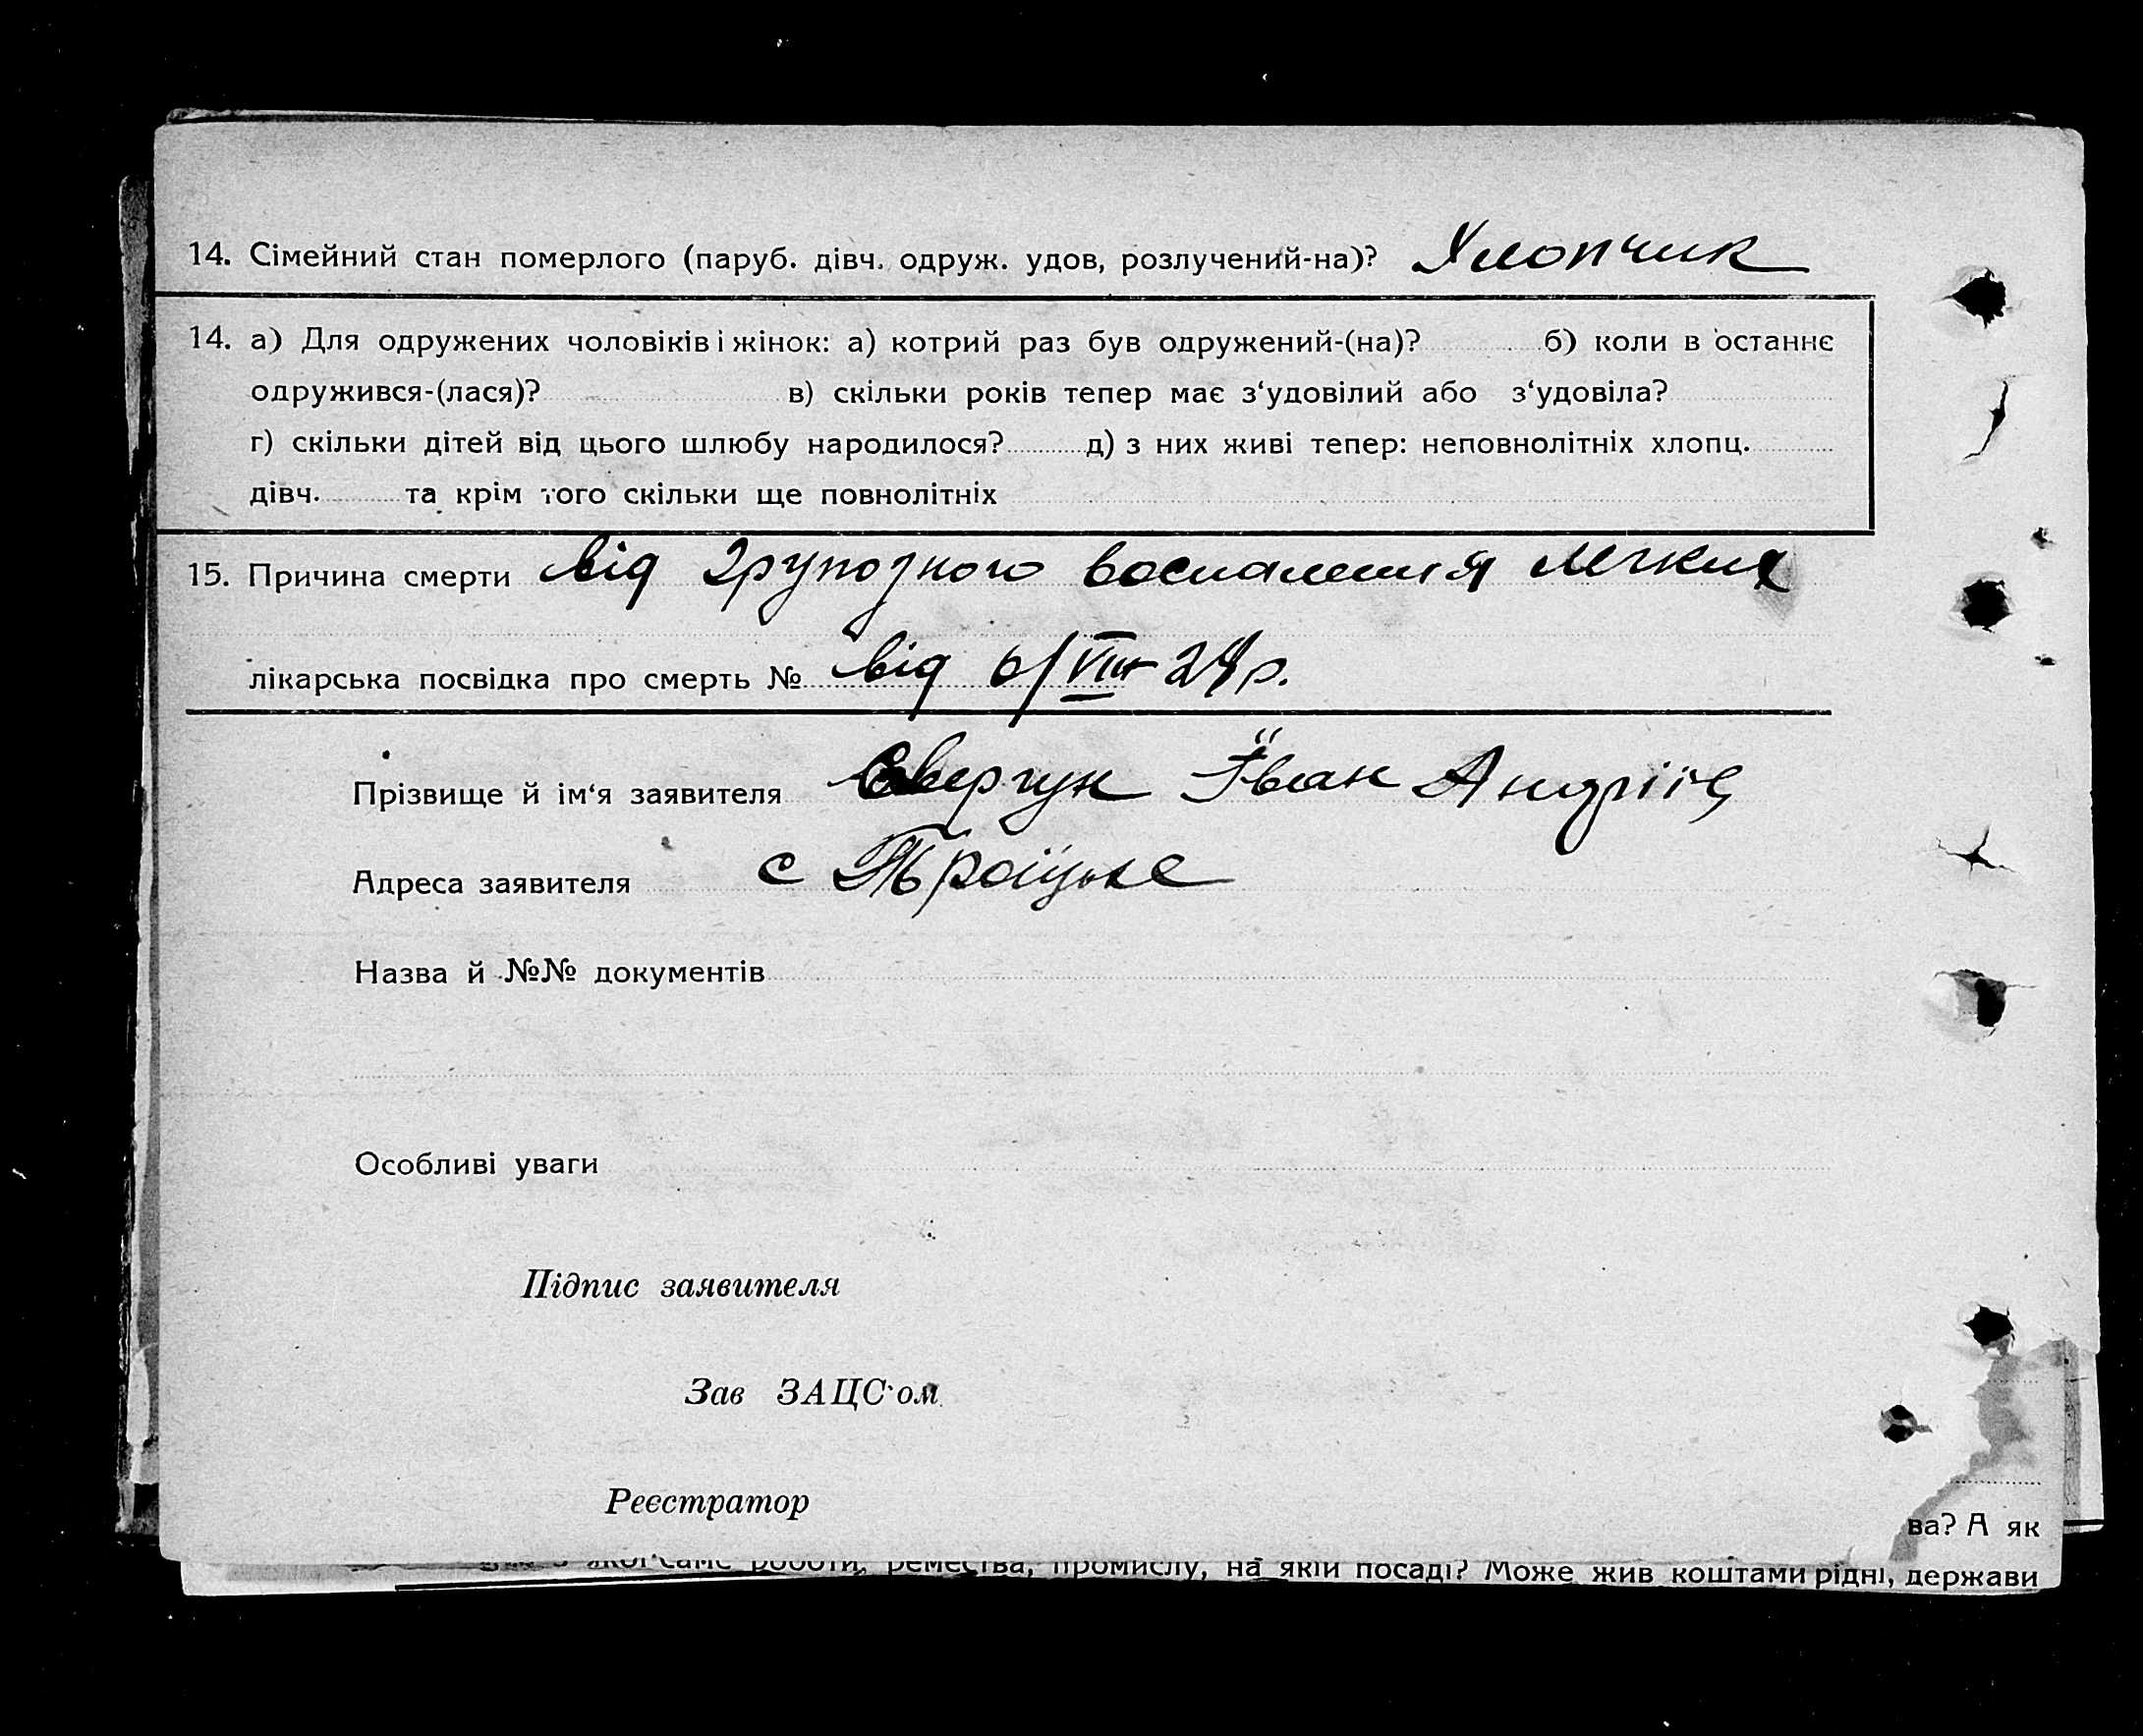 14. Сімейний стан померлого (паруб. дівч. одруж. удов, розлучений-на)? Хлопчик
14. а) Для одружених чоловіків і жінок: а) котрий раз був одружений-(на)? б) коли в останнє
одружився-(лася)? в) скільки років тепер має з‘удовілий або з‘удовіла?
г) скільки дітей від цього шлюбу народилося? д) з них живі тепер: неповнолітніх хлопц.
дівч. та крім того скільки ще повнолітніх
15. Причина смерти від групозного воспаления легких
лікарська посвідка про смерть № від 6/VIII 24р.
Прізвище й ім‘я заявителя Сверчук Іван Андрій
Адреса заявителя с Троїцьке
Назва й №№ документів
Особливі уваги
Підпис заявителя
Зав ЗАЦС‘ом
Реєстратор
ва? А як
якої саме роботи, ремества, промислу, на якій посаді? Може жив коштами рідні, держави